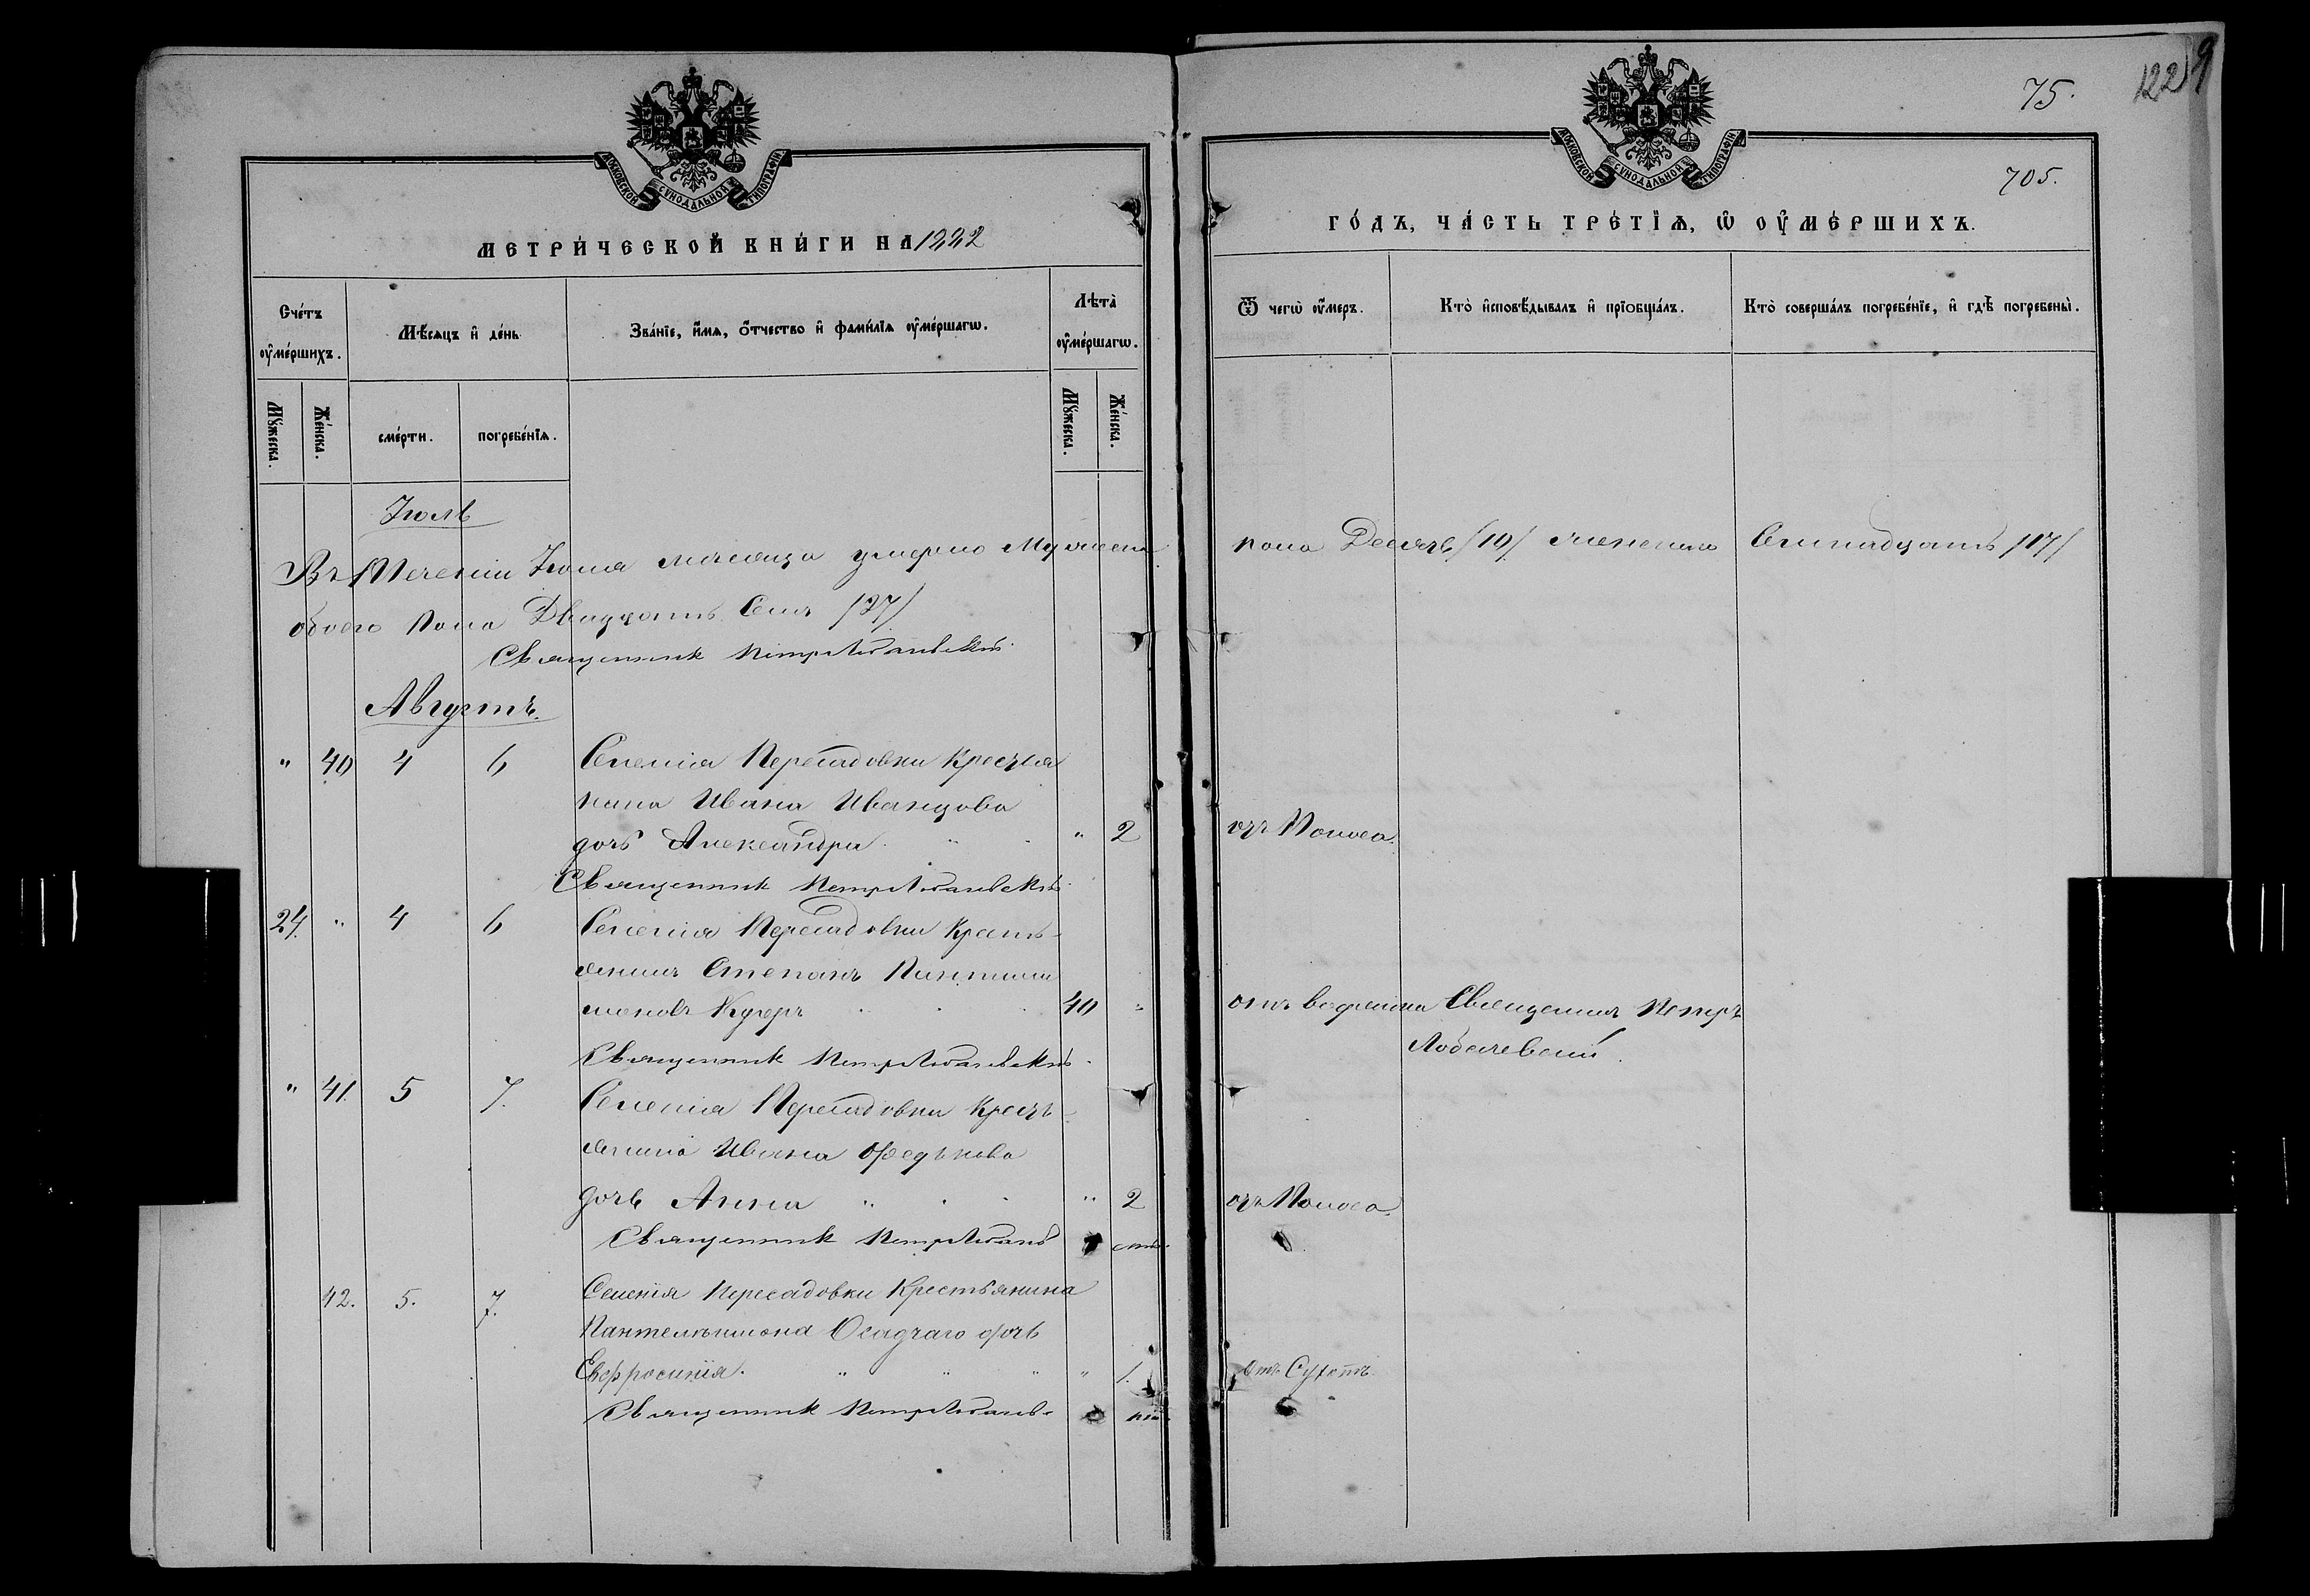 МОСКОВСКОЙ СѴНОДАЛЬНОЙ ТИПОГРАФІИ
МЕТРИ́ЧЕСКОЙ КНИ́ГИ НА 1882
Сче́тъ ᲂу҆ме́ршихъ.
Мѣ́сяцъ и҆ де́нь
Зва́нїе, и҆́мѧ, ѻ҆́тчество и҆ фами́лїѧ ᲂу҆ме́ршагѡ.
Лѣ́та ᲂу҆ме́ршагѡ.
Мꙋ́жеска.
Же́нска.
сме́рти.
погребе́нїѧ.
Мꙋ́жеска.
Же́нска.
Іюль
Въ теченіи Іюля мѣсяца умерло мужеска
обоего пола Двадцать Семь /27/
Священникъ Петръ Лобачевскій
Августъ.
" 40 4 6 Селенія Пересадовки крестья
нина Ивана Иванцова
дочь Александра " 2
Священникъ Петръ Лобачевскій
24. " 4 6 Селенія Пересадовки Кресть-
янинъ Степанъ Пантили
моновъ Кучеръ 40 "
Священникъ Петръ Лобачевскій
" 41 5 7. Селенія Пересадовки Кресть-
янина Ивана Федькова
дочь Анна " 2
Священникъ Петръ Лобачевскій
42. 5. 7. Селенія Пересадовки Крестьянина
Пантелѣимона Осадчаго дочь
Евфросинія. " 1.
Священникъ Петръ Лобачевскій
75. 1229
705.
МОСКОВСКОЙ СѴНОДАЛЬНОЙ ТИПОГРАФІИ
ГО́ДЪ, ЧА́СТЬ ТРЕ́ТЇѦ, Ѡ҆ ᲂУ҆МЕ́РШИХЪ.
Ѿ чегѡ̀ ᲂу҆́меръ.
Кто̀ и҆сповѣ́дывалъ и҆ прїобща́лъ.
Кто̀ соверша́лъ погребе́нїе, и҆ гдѣ̀ погребены̀.
пола Десять /10/ женска Семнадцать /17/
отъ Поноса.
отъ Священникъ Петръ
Лобачевскій.
отъ Поноса.
Отъ Сухотъ.